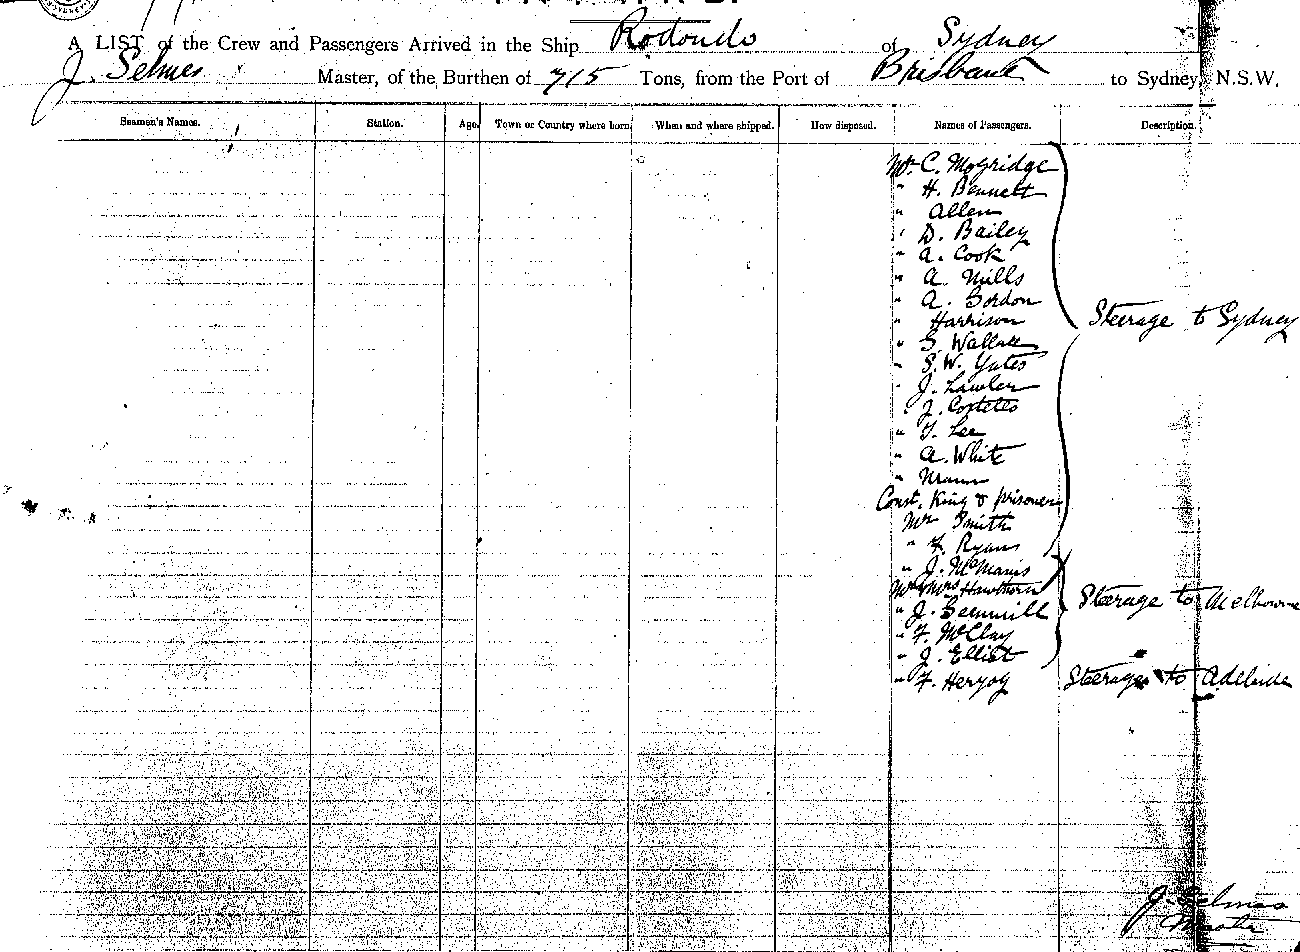 A LIST of the Crew and Passengers Arrived in the Ship Rodondo of Sydney
J. Selmes Master, of the Burthen of 715 Tons, from the Port of Brisbane to Sydney, N.S.W.
Seamen's Names. Station. Age. Town or Country where born. When and where shipped. How disposed. Names of Passengers. Description.
Mr. C. Mogridge
" H. Bennett
" Allen
" D. Bailey
" A. Cook
" A. Mills
" A. Gordon
" Harrison
Steerage to Sydney
" S. Wallace
" S.W. Yates
" J. Lawler
" J. Costello
" T. Lee
" A. White
" Mann
Const. King & prisoner
Mrs Smith
" F. Ryan
" J. McManis
Mr & Mrs Hawthorn
Steerage to Melbourne
" J. Gemmill
" F. McClay
" J. Elliot
" F. Herzog Steerage to Adelaide
J. Selmes
Master